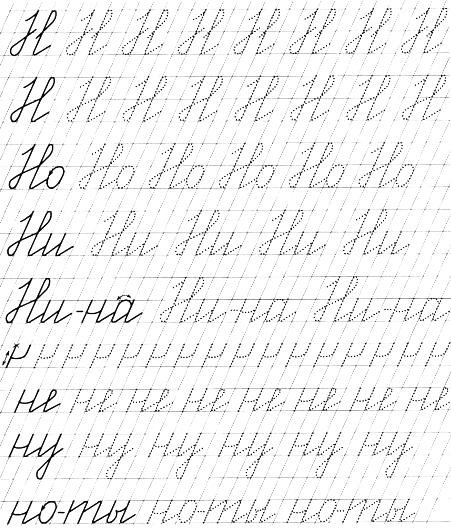 Н Н Н Н Н Н Н Н
Н Н Н Н Н Н Н Н
Но Но Но Но Но Но
Ни Ни Ни Ни Ни
Ни-на Ни-на Ни-на
не не не не не не не не
ну ну ну ну ну ну
но-ты но-ты но-ты